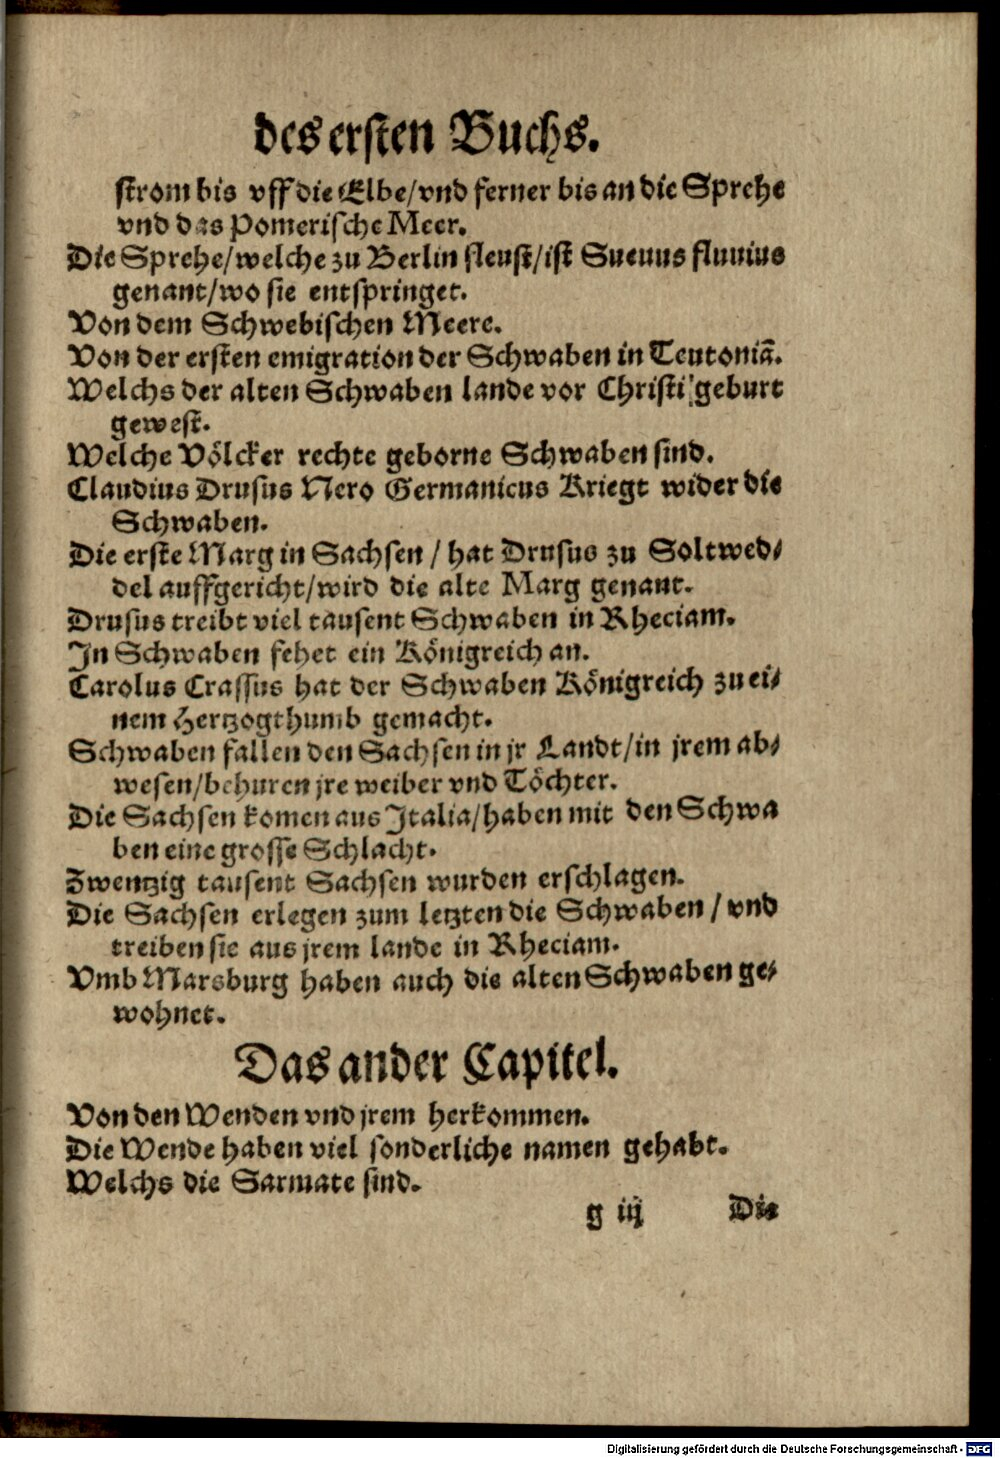 des ersten Buchs.
strom bis vff die Elbe/vnd ferner bis an die Sprehe
vnd das Pomerische Meer.
Die Sprehe/welche zu Berlin fleust/ist Sueuus fluuius
genant/wo sie entspringet.
Von dem Schwebischen Meere.
Von der ersten emigration der Schwaben in Teutoniã.
Welchs der alten Schwaben lande vor Christi geburt
gewest.
Welche Völcker rechte geborne Schwaben sind.
Claudius Drusus Nero Germanicus Kriegt wider die
Schwaben.
Die erste Marg in Sachsen / hat Drusus zu Soltwed⸗
del auffgericht/wird die alte Marg genant.
Drusus treibt viel tausent Schwaben in Rheciam.
In Schwaben fehet ein Königreich an.
Carolus Crassus hat der Schwaben Königreich zu ei⸗
nem Hertzogthumb gemacht.
Schwaben fallen den Sachsen in jr Landt/in jrem ab⸗
wesen/behuren jre weiber vnd Töchter.
Die Sachsen komen aus Italia/haben mit den Schwa
ben eine grosse Schlacht.
Zwentzig tausent Sachsen wurden erschlagen.
Die Sachsen erlegen zum letzten die Schwaben / vnd
treiben sie aus jrem lande in Rheciam.
Vmb Marsburg haben auch die alten Schwaben ge⸗
wohnet.
Das ander Capitel.
Von den Wenden vnd jrem herkommen.
Die Wende haben viel sonderliche namen gehabt.
Welchs die Sarmate sind.
g iij Die
Digitalisierung gefördert durch die Deutsche Forschungsgemeinschaft - DFG